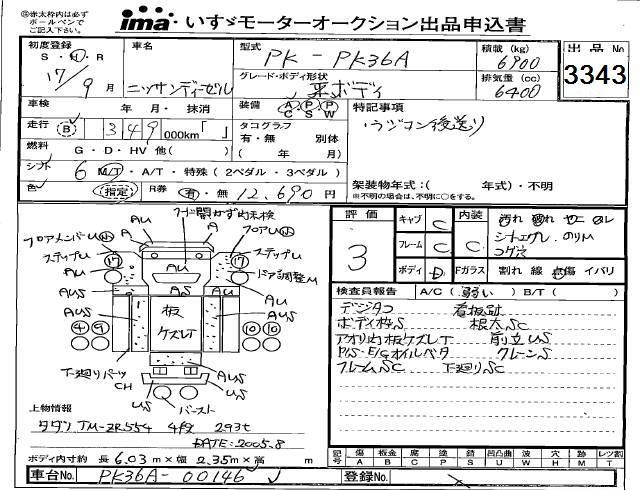 ㊟赤太枠内は必ず
ボールペンで
ご記入下さい。
ima・いすゞモーターオークション出品申込書
初度登録
S・H・R
17/9月
車名
ニッサンディーゼル
型式
PK-PK36A
グレード・ボディ形状
平ボディ
積載(kg)
6900
排気量(cc)
6400
出品No
3343
車検
年・月・抹消
装備
A/C P/S P/W
特記事項
・ラジコン後送り
走行 B 349,000km「」
タコグラフ
有・無 別体
(年 月)
燃料 G・D・HV 他( )
シフト 6 M/T・A/T・特殊(2ペダル・3ペダル)
色 (指定) R券 有・無 12,690円
架装物年式:( 年式)・不明
※不明の場合は、不明に○をする。
評価
3
キャブ C
フレーム C
ボディ D
内装 C
Fガラス
汚れ 破れ セニ ヨレ
シートエグレ・のりM
コゲ穴
割れ 線 点傷 イバリ
検査員報告 A/C(弱い) B/T( )
デジタコ 看板跡
ボディ枠S 根太SC
アオリ内板ケズレT 前立US
P/S・E/Gオイルベタ クレーンS
フレームSC 下廻りSC
フロアメンバーU小
ステップU
AU
A
AU
A
フロアU小
ステップU
ドア調整M
17
17
AU
AU
AU
AS
AU
AUS
AUS
板
ケズレT
4 9
10 10
下廻りパーツ
CH
AUS
AUS
US
US
バースト
上物情報
タダノ TM-ZR554 4段 2.93t
DATE:2005.8
ボディ内寸約 長 6.03m×幅 2.35m×高 m
車台No. PK36A-00146
登録No.
記号 傷 板金 腐 塗 錆 凹凸曲 波 穴 跡 レツ割
A B C P S U W H M T